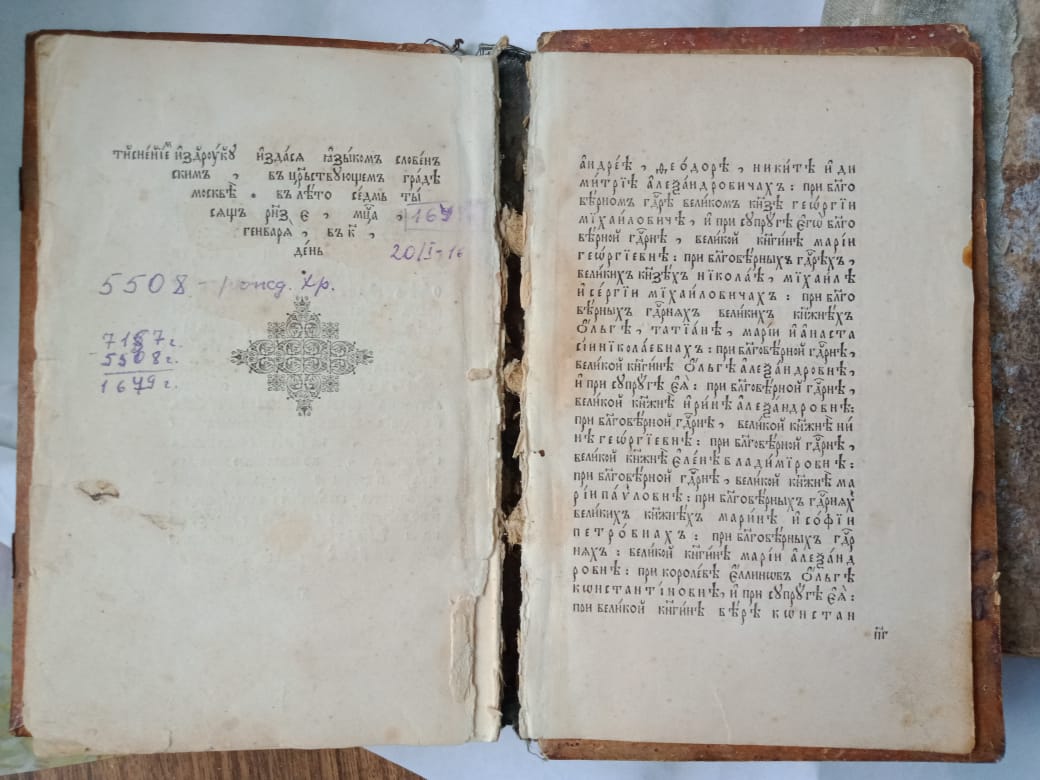 тисне́нїе и҆з̾дрꙋ́кꙋ и҆зда́сѧ ꙗ҆зы́комъ слове́нъ
скимъ , въ црⷭ҇твꙋющемъ гра́дѣ
москвѣ̀ . въ лѣ́то се́дмь ты
сѧщъ рн҃з є҃ , мцⷭ҇а ,
167
генварѧ̀ , въ к҃ ,
де́нь
20/I-16
5508 - рожд. Хр.
7187 г.
5508 г.
1679 г.
а҆ндре́ѣ , ѳео́дорѣ , ники́тѣ и҆ ди
ми́трїѣ а҆леѯа́ндровичахъ : при бл҃го
вѣ́рномъ гдⷭ҇рѣ вели́комъ кн҃зѣ гео́ргїи
мїха́иловичѣ , и҆ при сꙋпрꙋ́гѣ є҆гѡ̀ бл҃го
вѣ́рной гдⷭ҇рнѣ , вели́кой кн҃ги́нѣ марі́и
гео́ргїевнѣ : при бл҃говѣ́рныхъ гдⷭ҇рѣхъ ,
вели́кихъ кн҃зѣхъ нїкола́ѣ , мїха́илѣ
и҆ се́ргїи мїха́иловичахъ : при бл҃го
вѣ́рныхъ гдⷭ҇рнѧхъ вели́кихъ кн҃жнѣхъ
ѻ҆́льгѣ , татїа́нѣ , марі́и и҆ а҆наста
сі́и нїкола́евнахъ : при бл҃говѣ́рной гдⷭ҇рнѣ ,
вели́кой кн҃ги́нѣ ѻ҆́льгѣ а҆леѯа́ндровнѣ ,
и҆ при сꙋпрꙋ́гѣ є҆ѧ̀ : при бл҃говѣ́рной гдⷭ҇рнѣ ,
вели́кой кн҃жнѣ̀ и҆ри́нѣ а҆леѯа́ндровнѣ :
при бл҃говѣ́рной гдⷭ҇рнѣ , вели́кой кн҃жнѣ̀ ни
нѣ гео́ргїевнѣ : при бл҃говѣ́рной гдⷭ҇рнѣ ,
вели́кой кн҃жнѣ̀ є҆ле́нѣ влади́мїровнѣ :
при бл҃говѣ́рной гдⷭ҇рнѣ , вели́кой кн҃жнѣ̀ ма
рі́и па́ѵловнѣ : при бл҃говѣ́рныхъ гдⷭ҇рнѧхъ
вели́кихъ кн҃жнѣхъ мари́нѣ и҆ софі́и
петро́внахъ : при бл҃говѣ́рныхъ гдⷭ҇р
нѧхъ : вели́кой кн҃ги́нѣ марі́и а҆леѯа́нд
ровнѣ : при короле́вѣ є҆́ллинѡвъ ѻ҆́льгѣ
кѡнстанті́новнѣ , и҆ при сꙋпрꙋ́гѣ є҆ѧ̀ :
при вели́кой кн҃ги́нѣ вѣ́рѣ кѡнстан
п҃г